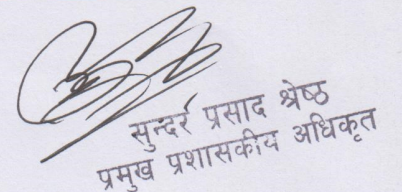 सुन्दर प्रसाद श्रेष्ठ
प्रमुख प्रशासकीय अधिकृत